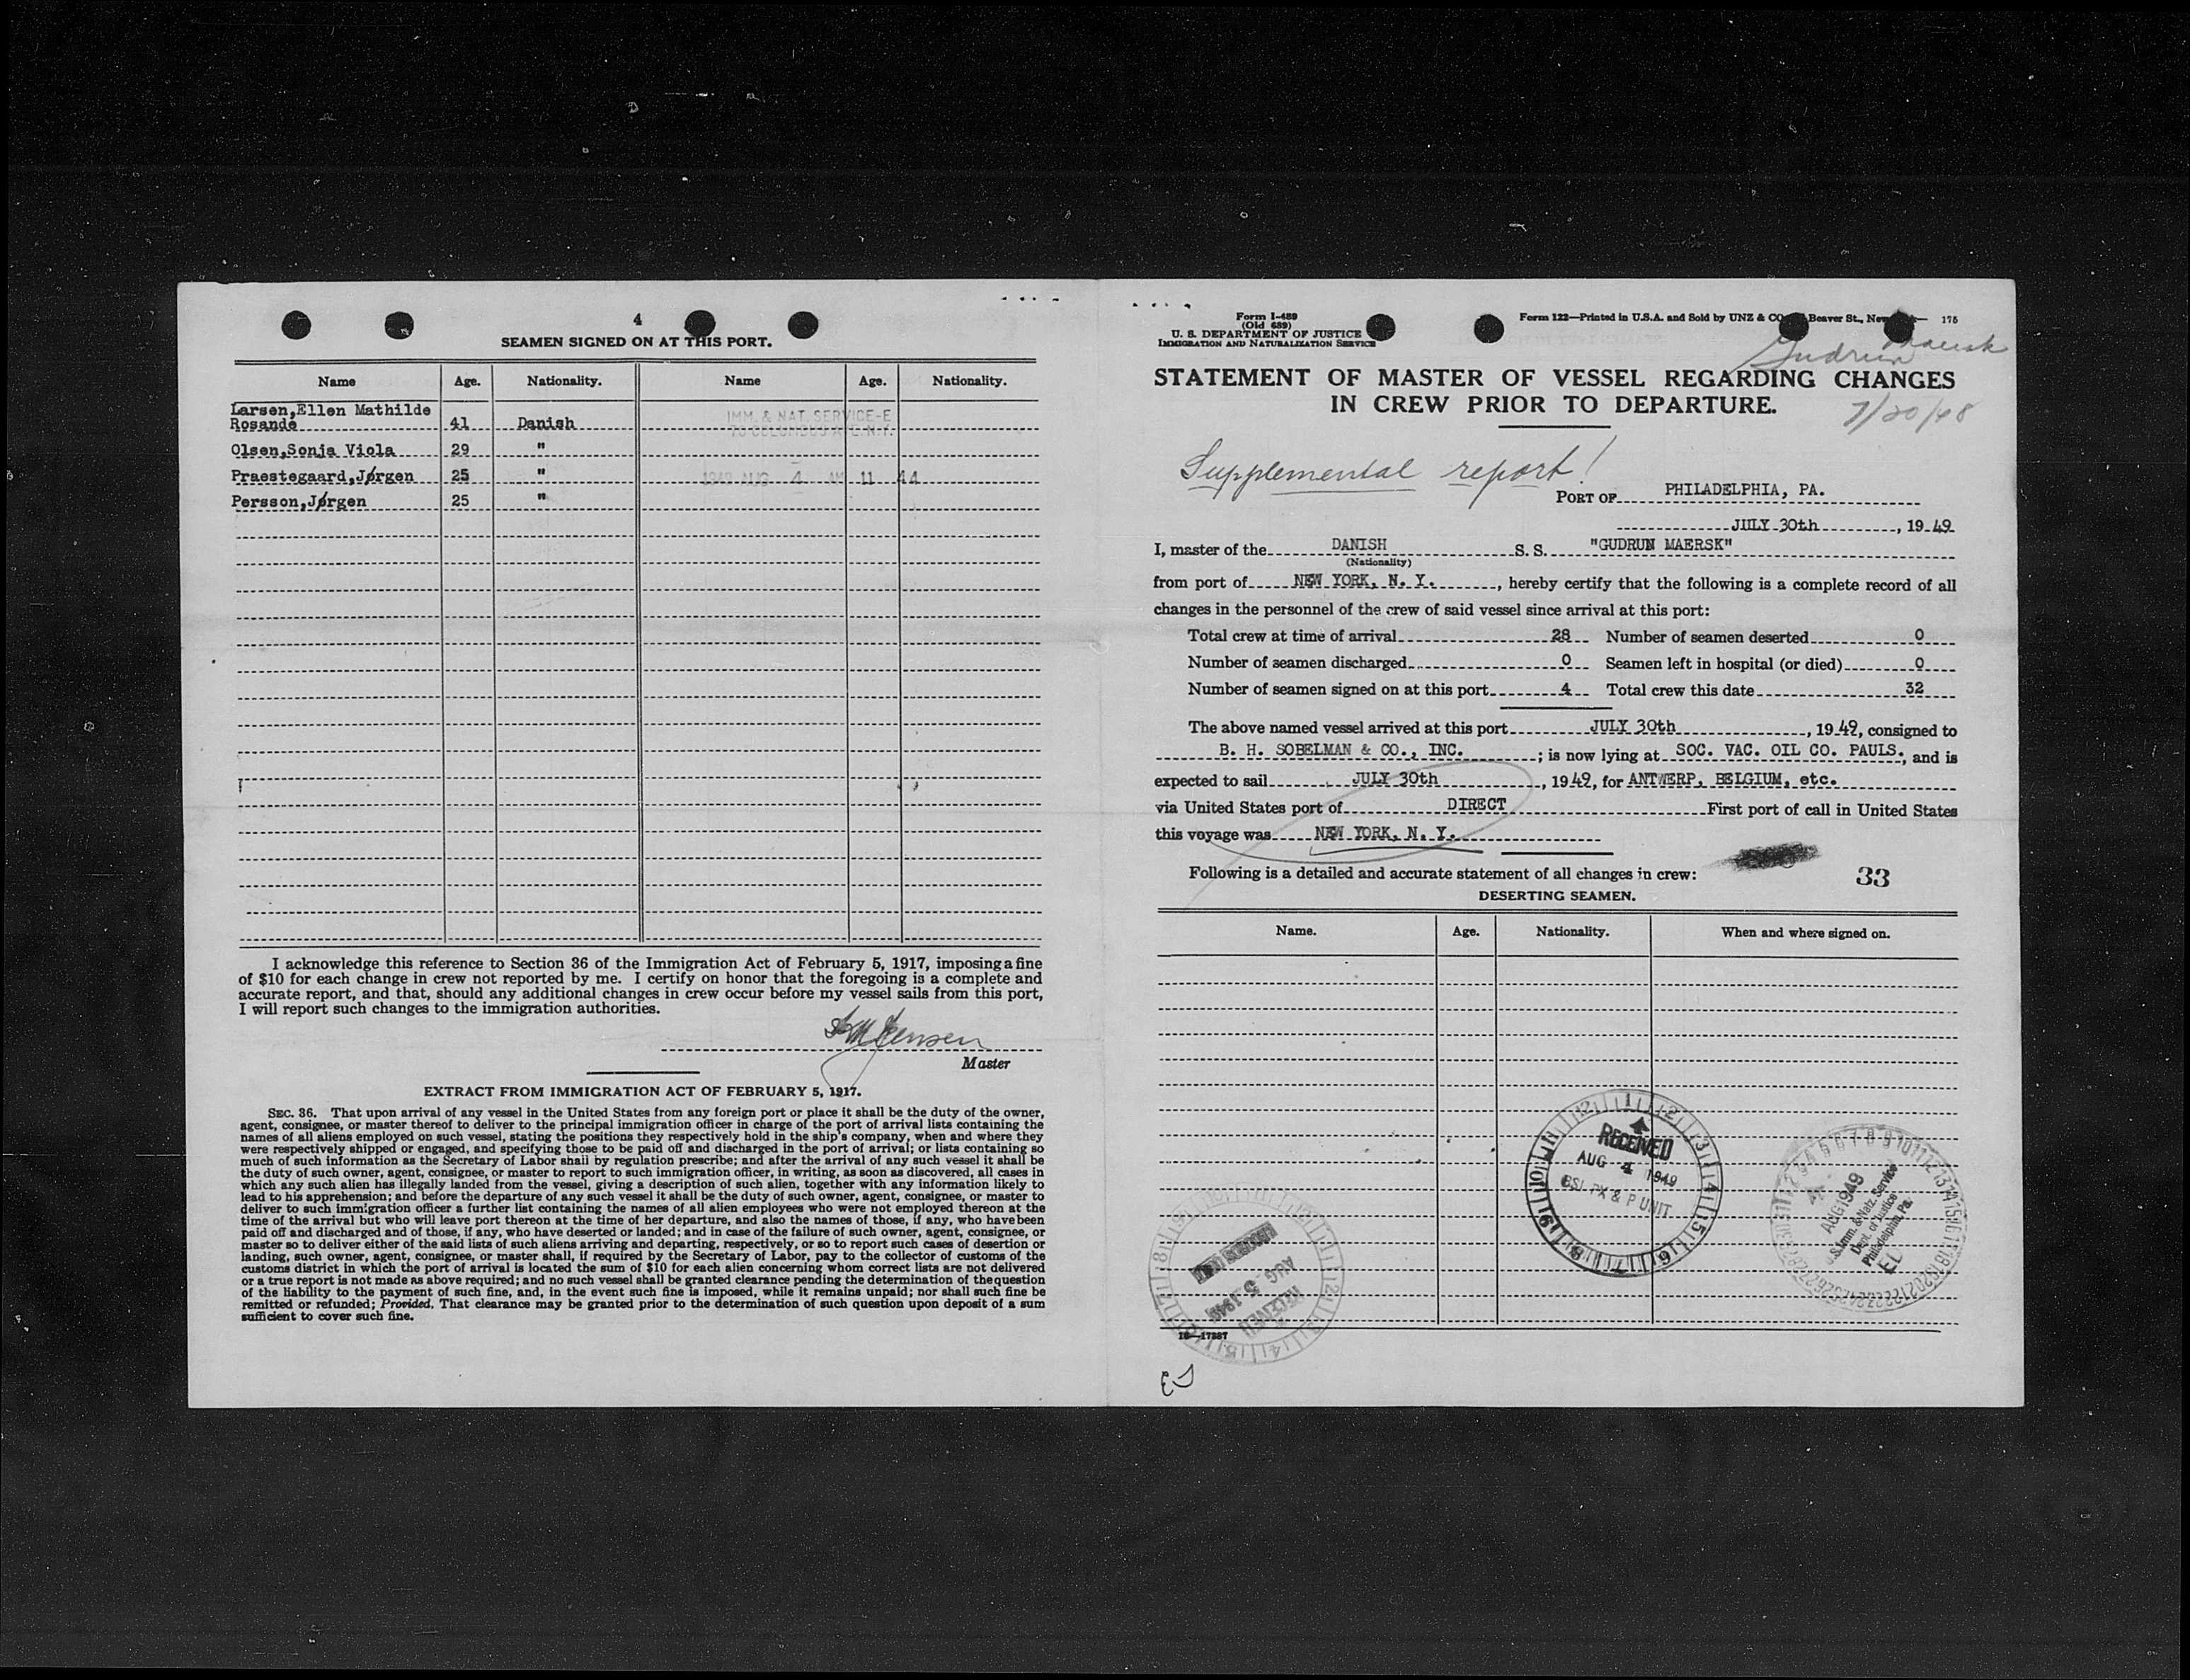 4
SEAMEN SIGNED ON AT THIS PORT.
Name Age. Nationality. Name Age. Nationality.
Larsen,Ellen Mathilde
Rosande 41 Danish
Olsen,Sonja Viola 29 "
Praestegaard,Jørgen 25 "
Persson,Jørgen 25 "
IMM. & NAT. SERVICE-E
70 COLUMBUS AVE. N.Y.
1949 AUG 4 AM 11 44
I acknowledge this reference to Section 36 of the Immigration Act of February 5, 1917, imposing a fine
of $10 for each change in crew not reported by me. I certify on honor that the foregoing is a complete and
accurate report, and that, should any additional changes in crew occur before my vessel sails from this port,
I will report such changes to the immigration authorities.
Jensen
Master
EXTRACT FROM IMMIGRATION ACT OF FEBRUARY 5, 1917.
SEC. 36. That upon arrival of any vessel in the United States from any foreign port or place it shall be the duty of the owner,
agent, consignee, or master thereof to deliver to the principal immigration officer in charge of the port of arrival lists containing the
names of all aliens employed on such vessel, stating the positions they respectively hold in the ship's company, when and where they
were respectively shipped or engaged, and specifying those to be paid off and discharged in the port of arrival; or lists containing so
much of such information as the Secretary of Labor shall by regulation prescribe; and after the arrival of any such vessel it shall be
the duty of such owner, agent, consignee, or master to report to such immigration officer, in writing, as soon as discovered, all cases in
which any such alien has illegally landed from the vessel, giving a description of such alien, together with any information likely to
lead to his apprehension; and before the departure of any such vessel it shall be the duty of such owner, agent, consignee, or master to
deliver to such immigration officer a further list containing the names of all alien employees who were not employed thereon at the
time of the arrival but who will leave port thereon at the time of her departure, and also the names of those, if any, who have been
paid off and discharged and of those, if any, who have deserted or landed; and in case of the failure of such owner, agent, consignee, or
master so to deliver either of the said lists of such aliens arriving and departing, respectively, or so to report such cases of desertion or
landing, such owner, agent, consignee, or master shall, if required by the Secretary of Labor, pay to the collector of customs of the
customs district in which the port of arrival is located the sum of $10 for each alien concerning whom correct lists are not delivered
or a true report is not made as above required; and no such vessel shall be granted clearance pending the determination of the question
of the liability to the payment of such fine, and, in the event such fine is imposed, while it remains unpaid; nor shall such fine be
remitted or refunded; Provided, That clearance may be granted prior to the determination of such question upon deposit of a sum
sufficient to cover such fine.
Form I-489
(Old 689)
U. S. DEPARTMENT OF JUSTICE
IMMIGRATION AND NATURALIZATION SERVICE
Form 122—Printed in U.S.A. and Sold by UNZ & CO Beaver St., New 175
Gudrun Maersk
STATEMENT OF MASTER OF VESSEL REGARDING CHANGES
IN CREW PRIOR TO DEPARTURE.
7/20/48
Supplemental report!
PORT OF PHILADELPHIA, PA.
JULY 30th, 1949
I, master of the DANISH S. S. "GUDRUN MAERSK"
(Nationality)
from port of NEW YORK, N. Y., hereby certify that the following is a complete record of all
changes in the personnel of the crew of said vessel since arrival at this port:
Total crew at time of arrival 28 Number of seamen deserted 0
Number of seamen discharged 0 Seamen left in hospital (or died) 0
Number of seamen signed on at this port 4 Total crew this date 32
The above named vessel arrived at this port JULY 30th, 1949, consigned to
B. H. SOBELMAN & CO., INC.; is now lying at SOC. VAC. OIL CO. PAULS., and is
expected to sail JULY 30th, 1949, for ANTWERP, BELGIUM, etc.
via United States port of DIRECT First port of call in United States
this voyage was NEW YORK, N. Y.
Following is a detailed and accurate statement of all changes in crew: 33
DESERTING SEAMEN.
Name. Age. Nationality. When and where signed on.
RECEIVED
AUG 4 1949
BSI PX & P UNIT
AUG 1949
U.S. Imm. & Natz. Service
Dept. of Justice
Philadelphia, Pa.
EL
RECEIVED
AUG 5 1949
16—17387